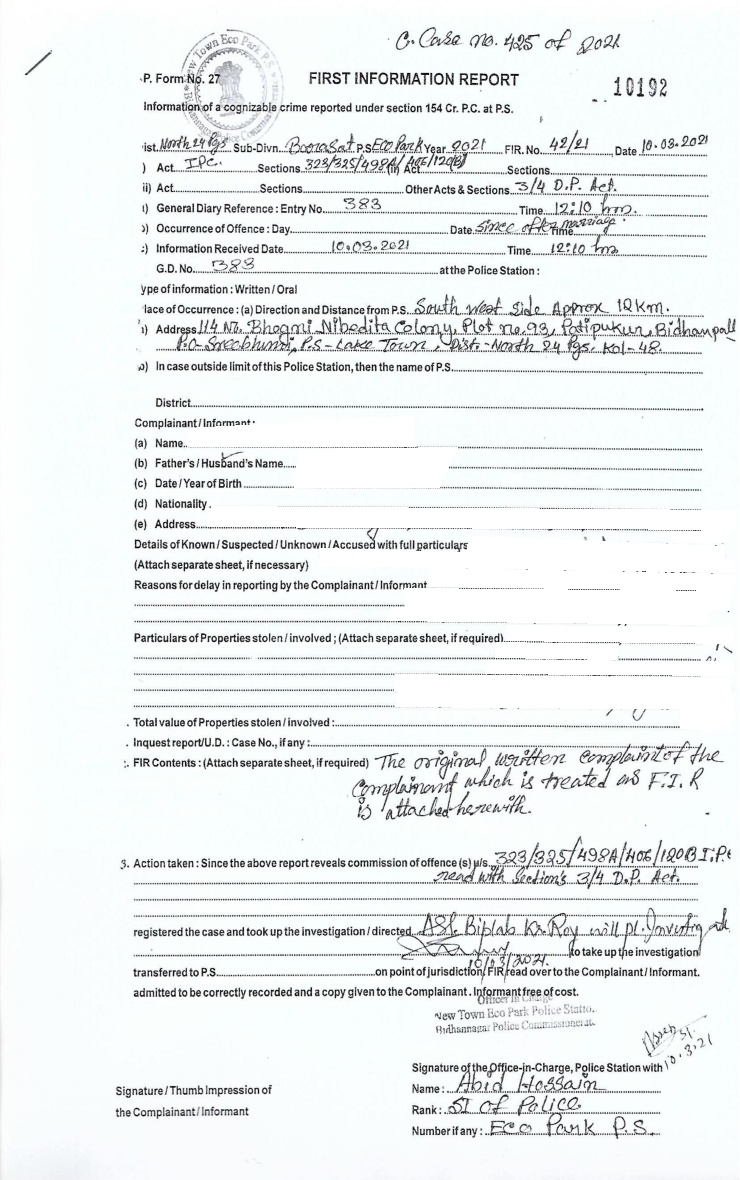 C. Case no. 425 of 2021
New Town Eco Park P.S.
P. Form No. 27
FIRST INFORMATION REPORT
10192
Information of a cognizable crime reported under section 154 Cr. P.C. at P.S.
ist. North 24 Pgs Sub-Divn. Boorasat P.S Eco Park Year 2021 FIR. No. 42/21 Date 10.03.2021
) Act IPC. Sections 323/325/498A/406/120B (iii) Act Sections
ii) Act Sections Other Acts & Sections 3/4 D.P. Act.
ı) General Diary Reference : Entry No. 383 Time 12:10 hrs.
ɔ) Occurrence of Offence : Day Date since after marriage Time
:) Information Received Date 10.03.2021 Time 12:10 hrs
G.D. No. 383 at the Police Station :
ype of information : Written / Oral
lace of Occurrence : (a) Direction and Distance from P.S. South West Side Approx 12 Km.
ı) Address 114 No. Bhagni Nibedita Colony, Plot no. 93, Patipukur, Bidhanpall
P.O- Sreebhumi, P.S- Lake Town, Dist.- North 24 Pgs. Kol-48.
ɔ) In case outside limit of this Police Station, then the name of P.S.
District
Complainant / Informant
(a) Name
(b) Father's / Husband's Name
(c) Date / Year of Birth
(d) Nationality
(e) Address
Details of Known / Suspected / Unknown / Accused with full particulars
(Attach separate sheet, if necessary)
Reasons for delay in reporting by the Complainant / Informant
Particulars of Properties stolen / involved ; (Attach separate sheet, if required)
. Total value of Properties stolen / involved :
. Inquest report/U.D. : Case No., if any :
:. FIR Contents : (Attach separate sheet, if required) The original written complaint of the
Complainant which is treated as F.I.R
is attached herewith.
3. Action taken : Since the above report reveals commission of offence (s) u/s. 323/325/498A/406/120B I.P.C
read with Section's 3/4 D.P. Act.
registered the case and took up the investigation / directed ASI. Biplab Kr. Roy will pl. Investigate
to take up the investigation
10/03/2021.
transferred to P.S. on point of jurisdiction/ FIR read over to the Complainant / Informant.
admitted to be correctly recorded and a copy given to the Complainant . Informant free of cost.
Officer in Charge
New Town Eco Park Police Statio
Bidhannagar Police Commissionerate
SI.
10.3.21
Signature of the Office-in-Charge, Police Station with
Signature / Thumb Impression of
the Complainant / Informant
Name : Abid Hossain
Rank : SI of Police
Number if any : Eco Park P.S.